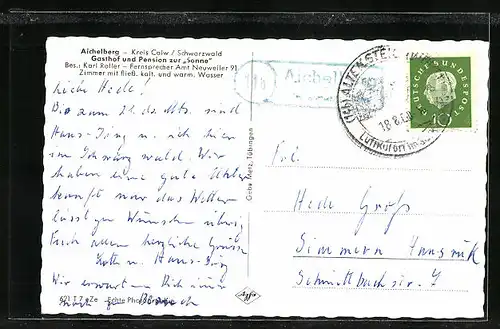 Aichelberg – Kreis Calw / Schwarzwald
Gasthof und Pension zur „Sonne"
Bes.: Karl Roller – Fernsprecher Amt Neuweiler 91
Zimmer mit fließ. kalt. und warm. Wasser
Liebe Hede!
Bis zum 21. ds. Mts. sind
Hans-Jörg u. ich hier
im Schwarzwald. Wir
haben eine gute Unter
kunft nur das Wetter
lässt zu Wünschen übrig.
Euch allen herzliche Grüsse
u. Hans-Jörg
Wir erwarten Dich
Besuch
Echte Photographie
Gebr. Metz, Tübingen
Agfa
Aichelberg
(14b) ALTENSTEIG
18.8.60
Luftkurort im
DEUTSCHE BUNDESPOST
10
Frl.
Hede Groß
Simmern Hunsrück
Schmittbachstr. 7